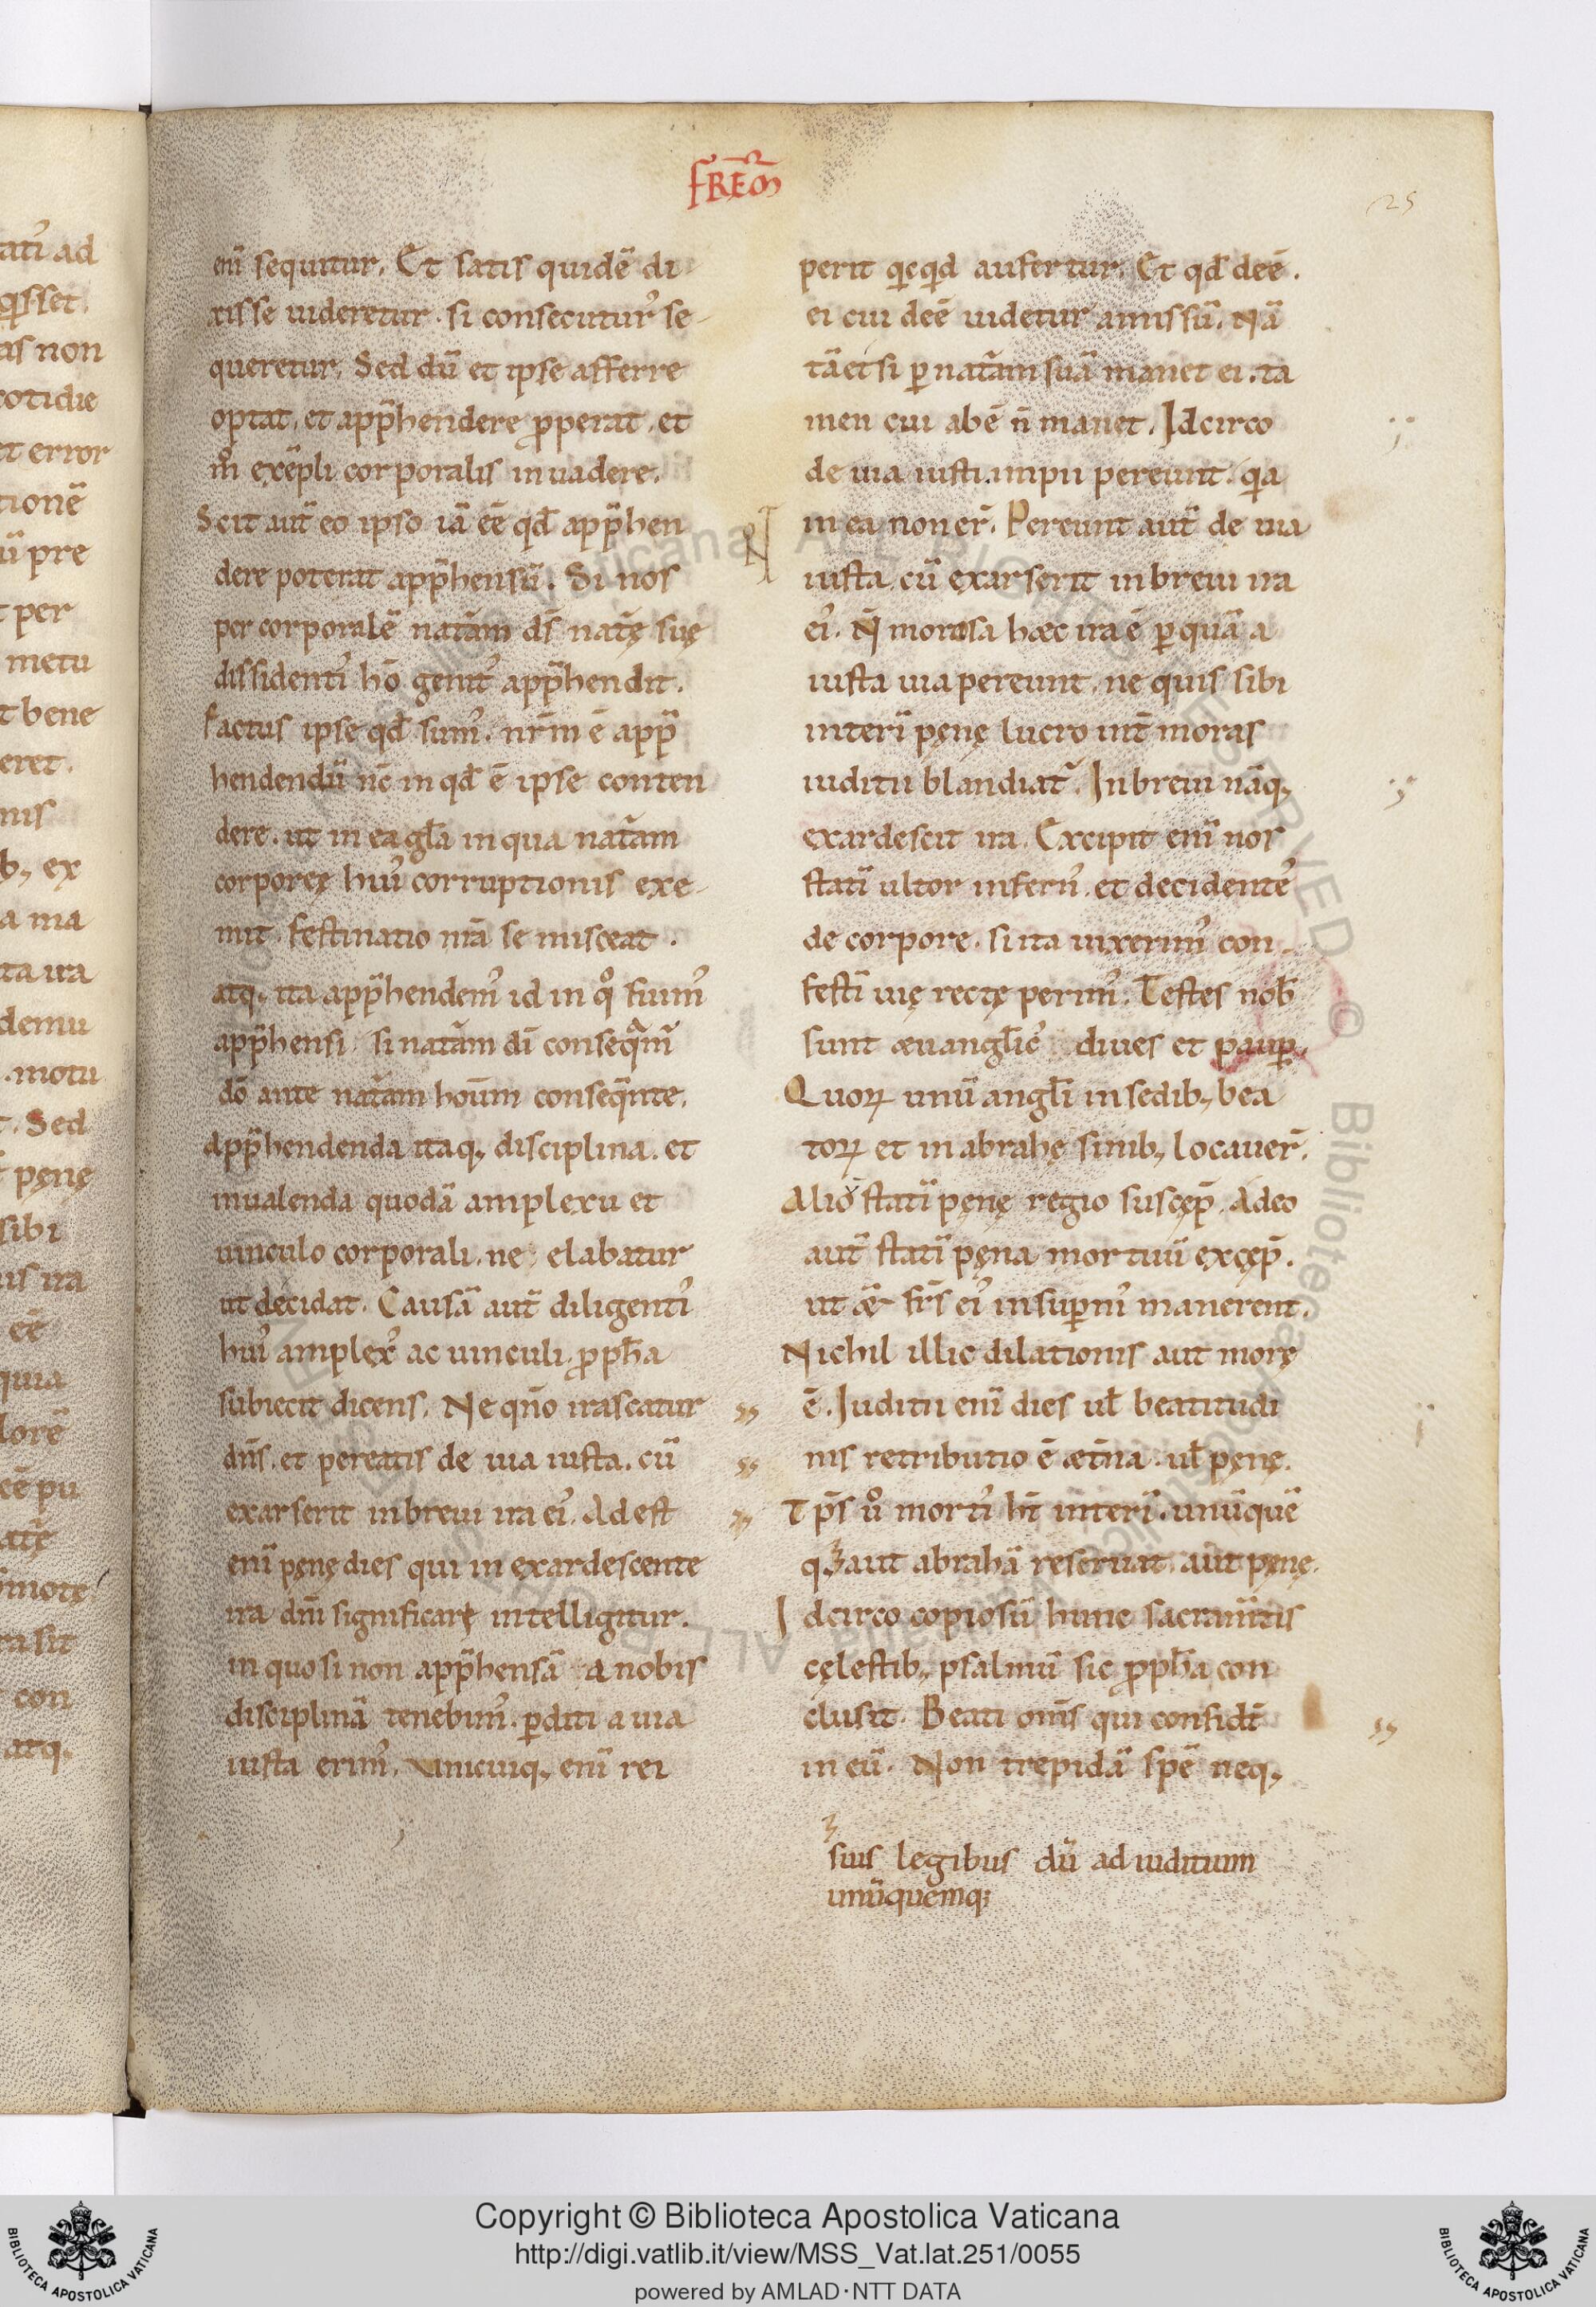 FREM̄
25
eni̅ sequitur. Et satis quide̅ di-
xisse uideretur. si consecutur᾽ se-
queretur. Sed du̅ et ipse afferre
optat. et app̅hendere p̱perat. et
m̊ exe̅pli corporalis inuadere.
Scit aut̅ eo ipso ia̅ ee̅ qd̅ app̅hen
dere poterat app̅hensu̅. Si nos
per corporale̅ nat̅am ds̅ nat̅ę suę
dissidenti᾽ ho̅ genit᾽ app̅hendit.
factus ipse qd̅ sum᾽. nr̅m e̅ app̅
hendendu̅ nc̅ in qd̅ e̅ ipse conten
dere. ut in ea gl̅a in qua nat̅am
corporeę hui᾽ corruptionis exe-
mit. festinatio nr̅a se misceat.
atq, ita app̅hendem᾽ id in q̊ fuim᾽
app̅hensi. si nat̅am di̅ conseq̅m᾽
do̅ ante nat̅am hou̅m conseq̅nte.
Apprhendenda itaq, disciplina. et
inualenda quoda̅ amplexu et
uinculo corporali. ne elabatur
ut decidat. Causa̅ aut̅ diligenti᾽
hui᾽ amplex᾽ ac uinculi. p̱ph̅a
subiecit dicens. Ne qn̅o irascatur
dn̅s. et pereatis de uia iusta. cu̅
exarserit inbreui ira ei᾽. Adest
eni̅ pęnę dies qui in exardescente
ira dn̅i significarę intelligitur.
in quo si non app̅hensa̅ a nobis
disciplina̅ tenebim᾽. p̱diti a uia
iusta erim᾽. Unicuiq, eni̅ rei
perit qc̨qd aufertur. Et qd̅ dee̅.
ei cui dee̅ uidetur amissu̅. Na̅
ta̅etsi p̱ nat̅am sua̅ manet ei. ta
men cui abe̅ n̅ manet. Idcirco
de uia iusti. impii pereunt. qa
in ea non er̅. Pereunt aut̅ de uia
iusta. cu̅ exarserit inbreui ira
ei᾽. N̅ morosa hæc ira e̅ p̱ qua̅ a
iusta uia pereunt. ne quis sibi
interi̅ pęnę lucro int̅ moras
iuditii blandiat᾽. Inbreui na̅q,
exardescit ira. Excipit eni̅ nos
stati̅ ultor infern᾽. et decidente᾽
de corpore. si ita uixerim᾽ con-
festi̅ uię rectę perim᾽. Testes nob̅
sunt æuanglic᾽ diues et paup̱.
Quoꝝ unu̅ angl̅i in sedib, bea
toꝝ et in abrahę sinib, locauer̅.
Aliu̅ stati̅ pęnę regio suscęp̅. Adeo
aut̅ stati̅ pęna mortuu̅ excęp̅.
ut æ frs̅ ei᾽ insup̱ni᾽ manerent.
Nichil illic dilationis aut morę
e̅. Iuditii eni̅ dies ul̅ beatitudi
nis retributio e̅ æt̅na. ul̅ pęnę.
Tp̅s ů morti᾽ ht̅ interi̅. unu̅que̅
qʒ aut abraha̅ reseruat. aut pęnę.
Idcirco copiosu̅ hunc sacram̅tis
cęlestib, psalmu̅ sic p̱ph̅a con
clusit. Beati om̅s qui confidt̅
in eu̅. Non trepida̅ spe̅ neq,
suis legibus du̅ ad iuditium
unu̅quemq;
Copyright © Biblioteca Apostolica Vaticana
http://digi.vatlib.it/view/MSS_Vat.lat.251/0055
powered by AMLAD·NTT DATA